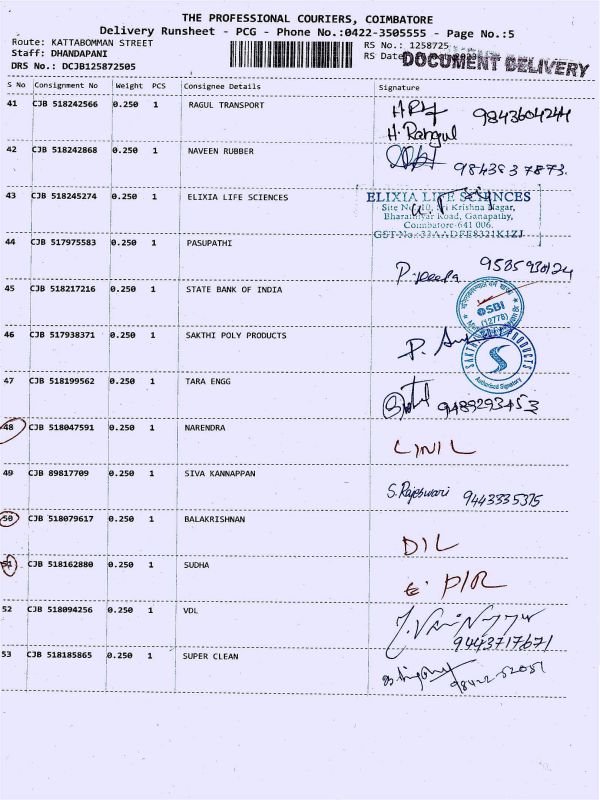 THE PROFESSIONAL COURIERS, COIMBATORE
Delivery Runsheet - PCG - Phone No.:0422-3505555 - Page No.:5
Route: KATTABOMMAN STREET
Staff: DHANDAPANI
DRS No.: DCJB125872505
RS No.: 1258725
RS Date
DOCUMENT DELIVERY
S No Consignment No Weight PCS Consignee Details Signature
41 CJB 518242566 0.250 1 RAGUL TRANSPORT 9843604244
H. Rangul
42 CJB 518242868 0.250 1 NAVEEN RUBBER
43 CJB 518245274 0.250 1 ELIXIA LIFE SCIENCES
ELIXIA LIFE SCIENCES
Site No. 10, Sri Krishna Nagar,
Bharathiyar Road, Ganapathy,
Coimbatore-641 006.
GST No.: 33AADFE8321K1ZJ
44 CJB 517975583 0.250 1 PASUPATHI
45 CJB 518217216 0.250 1 STATE BANK OF INDIA
SBI
(12776)
46 CJB 517938371 0.250 1 SAKTHI POLY PRODUCTS
P.
SAKTHI POLY PRODUCTS
Authorised Signatory
47 CJB 518199562 0.250 1 TARA ENGG
9489293453
48 CJB 518047591 0.250 1 NARENDRA
L/N/L
49 CJB 89817709 0.250 1 SIVA KANNAPPAN
S. Rajeswari 9443335375
50 CJB 518079617 0.250 1 BALAKRISHNAN
D/L
51 CJB 518162880 0.250 1 SUDHA
P/R
52 CJB 518094256 0.250 1 VDL
9443717671
53 CJB 518185865 0.250 1 SUPER CLEAN